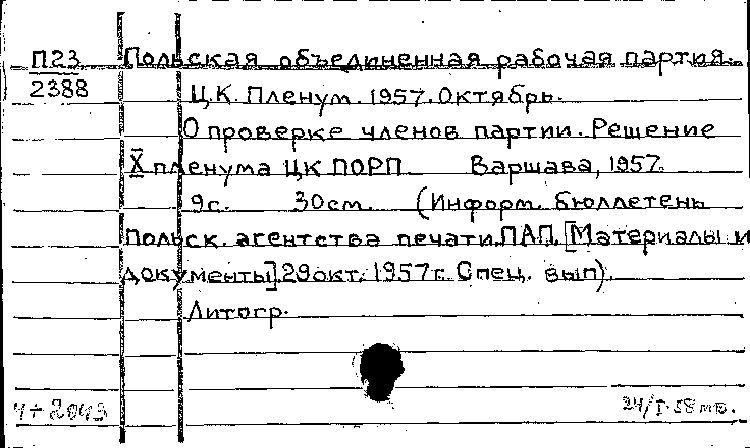 П23 Польская объединенная рабочая партия.
2388 Ц.К. Пленум. 1957. Октябрь.
О проверке членов партии. Решение
X пленума ЦК ПОРП Варшава, 1957.
9с. 30см. (Информ. бюллетень
Польск. агентства печати. ПАП. [Материалы и
документы]. 29 окт. 1957 г. Спец. вып).
Литогр.
24/I-58 тв.